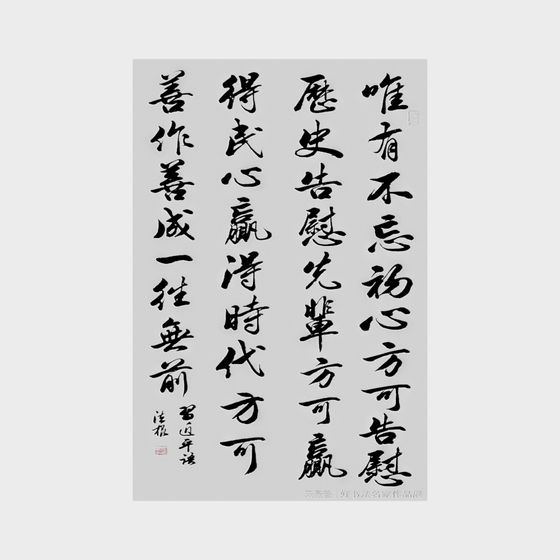 唯有不忘初心方可告慰
歷史告慰先輩方可贏
得民心贏得時代方可
善作善成一往無前
習近平語